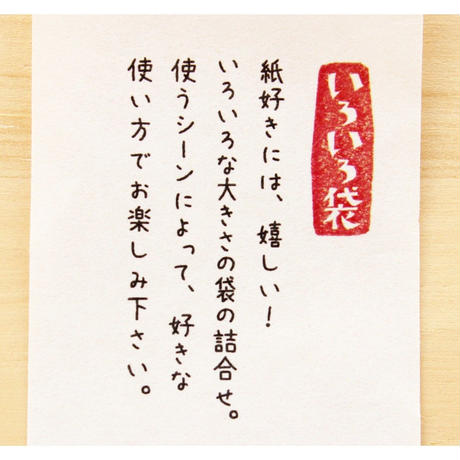 いろいろ袋
紙好きには、嬉しい！
いろいろな大きさの袋の詰合せ。
使うシーンによって、好きな
使い方でお楽しみ下さい。